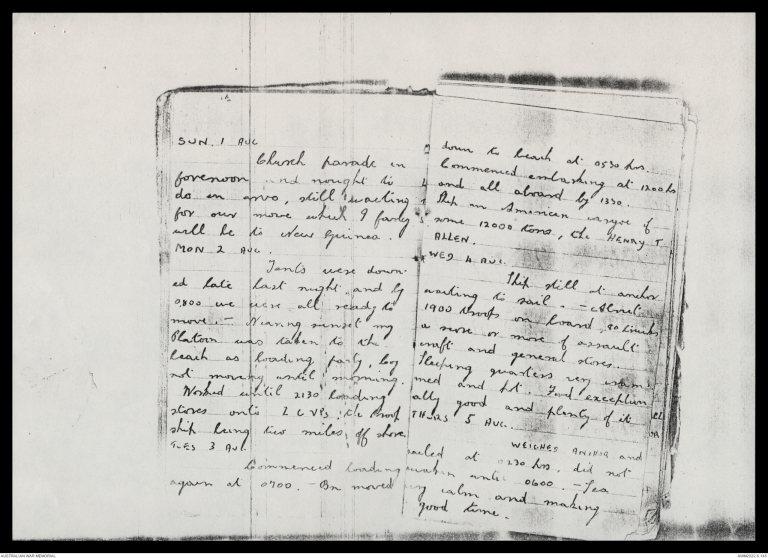 SUN. 1 AUG
Church parade in
forenoon and nought to
do in arvo, still waiting
for our move which I fancy
will be to New Guinea.
MON 2 AUG.
Tents were down-
ed late last night and by
0800 we were all ready to
move. - Nearing sunset my
Platoon was taken to the
beach as loading party, Coy
not moving until morning.
Worked until 2130 loading
stores onto LCVPs, the troop
ship being two miles off shore.
TUES 3 AUG.
Commenced loading
again at 0700. - Bn moved
down to beach at 0530 hrs.
Commenced embarking at 1200 hs
and all aboard by 1330.
Ship an American vessel of
some 12000 tons, the HENRY T
ALLEN.
WED 4 AUG.
Ship still at anchor
waiting to sail. - About
1900 troops on board,
a score or more of assault
craft and general stores.
Sleeping quarters very
med and hot. Food exception
ally good and plenty of it
THURS 5 AUG.
WEIGHED ANCHOR and
sailed at 0230 hrs, did not
awaken until 0600. - Sea
very calm and making
good time.
AUSTRALIAN WAR MEMORIAL